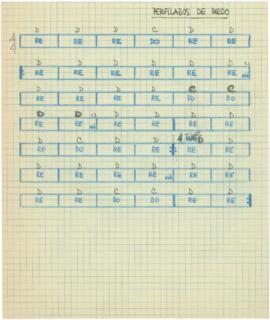 PERFILADOS DE MEDO
D D D C D D
4
4
RE RE RE DO RE RE
D D D D D D
RE RE RE RE RE RE
D D D D C C
RE RE RE RE DO DO
D D D D D D
RE RE RE RE RE RE
D C D D 4 D
RE DO RE RE RE RE
D D D D D D
RE RE RE RE RE RE
D D C C D D
RE RE DO DO RE RE